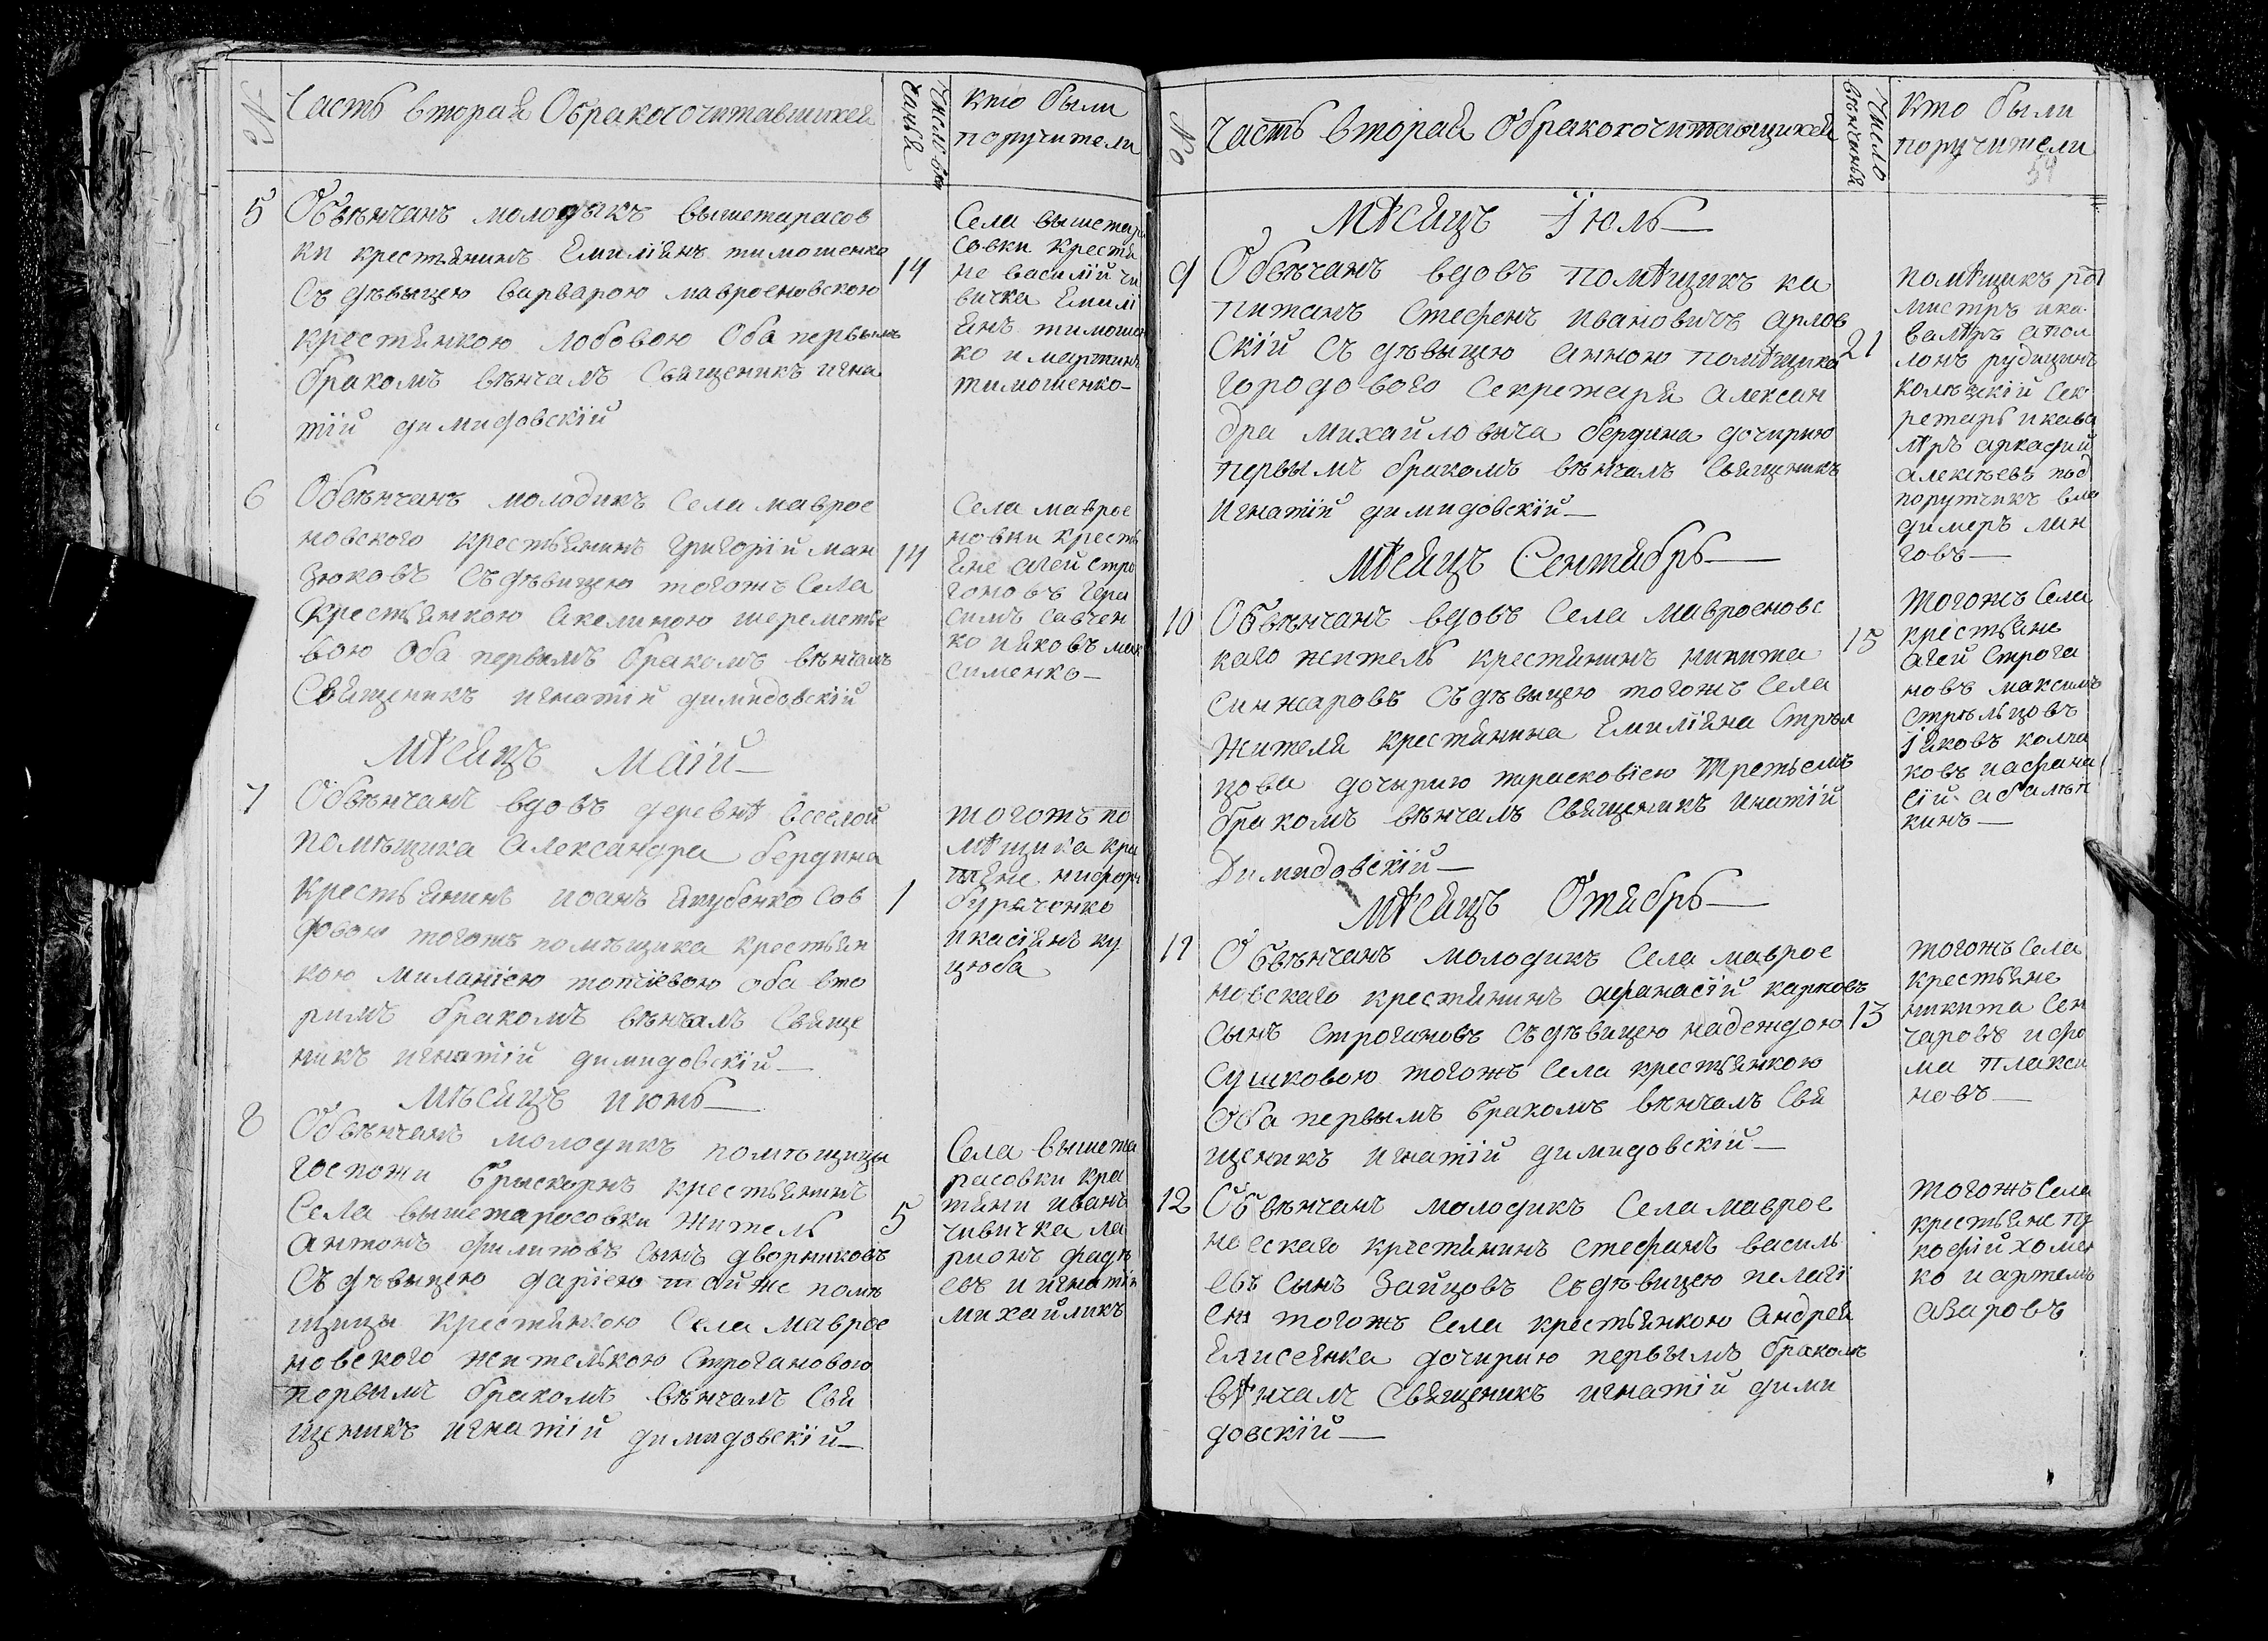 №
Часть вторая О бракосочитавшихся
Число вен
чанья
кто были
поручители
5
Обвѣнчанъ молодыкъ вышетарасов
ки крестьянинъ Емилiянъ тимошенко
съ дѣвыцею варварою мавроеновскою
крестянкою лобовою Оба первымъ
бракомъ вѣнчалъ Священикъ игна
тiй димидовскiй
14
Села вышетара
совки крестя
не василiй чи
вичка Емилi
янъ тимошен
ко и мартинъ
тимошенко
6
Обвѣнчанъ молодикъ Села маврое
новского крестьянинъ григорiй ман
зюковъ съ дѣвицею тогожъ Села
крестьянкою акелиною шереметье
вою Оба первымъ бракомъ вѣнчалъ
Священикъ игнатiй димидовскiй
14
Села маврое
новки кресть
яне агей стро
гоновъ гера
симъ савчен
ко и яковъ мак
сименко
Мѣсяцъ Маiй
7
Обвѣнчанъ вдовъ деревнѣ веселой
помѣщика Александра бердина
крестьянинъ иоанъ якубенко Сов
довою тогожъ помѣщика крестьян
кою миланiею
оба вто
римъ бракомъ вѣнчалъ Свяще
никъ игнатiй димидовскiй
1
тогожъ по
мѣщика кре
тяне
бураченко
и касiянъ ку
цюба
Мѣсяцъ июнь
8
Обвѣнчанъ молодикъ помѣщицы
госпожи брискорнъ крестьянинъ
Села вышетаросовки житель
антонъ филиповъ Сынъ дворниковъ
Съ дѣвыцею дарiею тойже помѣ
щицы крестянкою Села маврое
новского жителькою Строгановою
первымъ бракомъ вѣнчалъ Свя
щеникъ игнатiй димидовскiй
5
Села вышета
расовки кре
тяни иванъ
чивичка ла
рионъ фадѣ
евъ и игнатiй
михайликъ
№
Часть вторая О бракосочитающихся
Число
вѣнчанья
Кто были
поручители
59
Мѣсяцъ Iюль
9
Обвѣчанъ вдовъ помѣщикъ ка
питанъ Стефенъ ивановичъ арлов
скiй съ дѣвыцею анною помѣщика
городового секретаря алексан
дра михайловича бердина дочирию
первымъ бракомъ вѣнчалъ Священикъ
Игнатiй димидовскiй
21
помѣщикъ рот
мистръ и ка
валѣръ апол
лонъ
колѣжскiй сек
ретарь и кава
лѣръ аркадий
алексѣевъ под
порутчикъ вла
димеръ лан
говъ
Мѣсяцъ Сентябрь
10
Обвѣнчанъ вдовъ Села мавроеновс
каго житель крестянинъ никита
синжаровъ съ дѣвыцею тогожъ Села
жителя крестянина Емилiяна Стрѣл
цова дочырию парасковiею третьемъ
бракомъ вѣнчалъ Священикъ Инатiй
Димидовскiй
15
Тогожъ Села
крестьяне
агей Строга
новъ максимъ
Стрѣльцовъ
Iяковъ колча
ковъ и афана
сiй
кинъ
Мѣсяцъ Отябрь
11
Обвѣнчанъ молодикъ Села маврое
новскаго крестянинъ афанасiй карповъ
сынъ Строгановъ съ дѣвицею надеждою
Сушковою тогожъ Села крестьянкою
Оба первымъ бракомъ вѣнчалъ Свя
щеникъ игнатiй димидовскiй
13
тогожъ Села
крестьяне
никита Сен
чаровъ и фо
ма плакси
новъ
12
Обвѣнчанъ молодикъ Села маврое
новскаго крестянинъ стефанъ василь
евъ сынъ Зайцовъ съ дѣвицею пелагi
ею тогожъ Села крестьянкою андрея
Елисеянка дочирию первымъ бракомъ
вѣнчалъ Священикъ игнатiй дими
довскiй
тогожъ Села
крестьяне пр
кофiй хомен
ко и артемъ
азаровъ